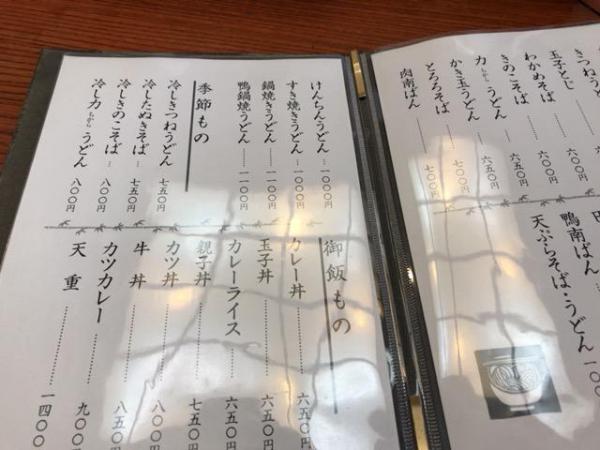 玉子とじ
わかめそば
きのこそば 六五〇円
力うどん ちから 六五〇円
かき玉うどん 六五〇円
とろろそば 七〇〇円
肉南ばん 七〇〇円
鴨南ばん
天ぷらそば・うどん 一〇
けんちんうどん 一〇〇〇円
すき焼きうどん 一〇〇〇円
鍋焼きうどん 一一〇〇円
鴨鍋焼うどん 一一〇〇円
季節もの
冷しきつねうどん 七五〇円
冷したぬきそば 七五〇円
冷しきのこそば 八〇〇円
冷し力うどん ちから 八〇〇円
御飯もの
カレー丼 六五〇円
玉子丼 六五〇円
カレーライス 六五〇円
親子丼 七五〇円
カツ丼 八〇〇円
牛丼 八五〇円
カツカレー 九〇〇
天重 一四〇〇